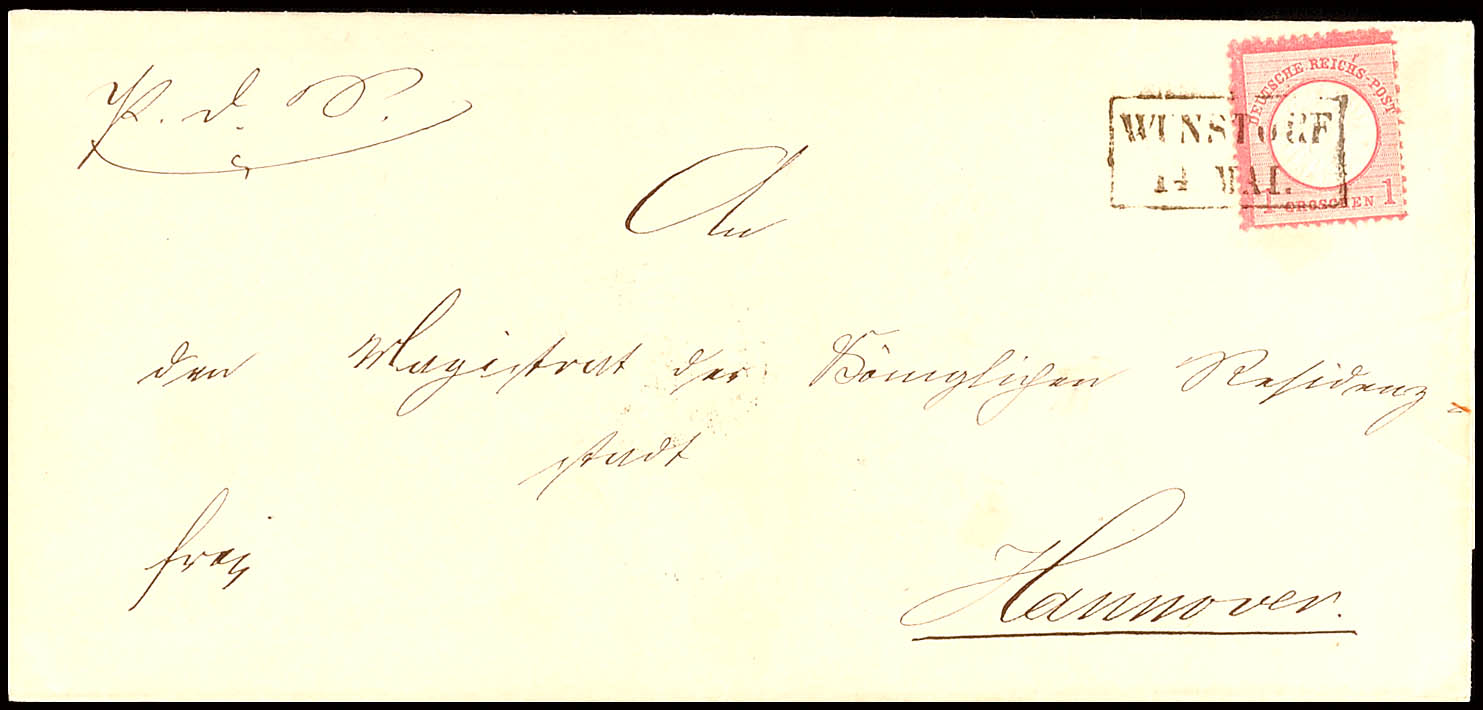 P. d. S.
DEUTSCHE REICHS-POST
WUNSTORF
14 MAI.
1 GROSCHEN 1
An
den Magistrat der Königlichen Residenz
stadt
frei
Hannover.